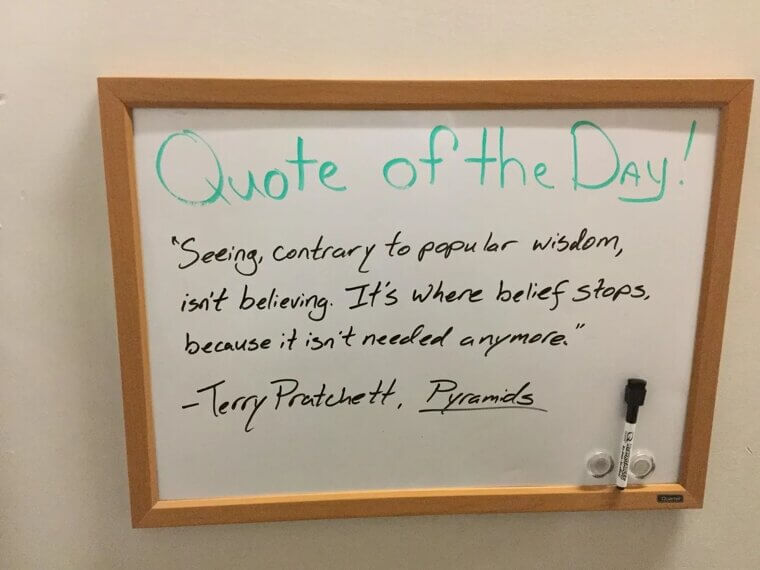 Quote of the Day!
"Seeing, contrary to popular wisdom,
isn't believing. It's where belief stops,
because it isn't needed anymore."
-Terry Pratchett, Pyramids
Quartet